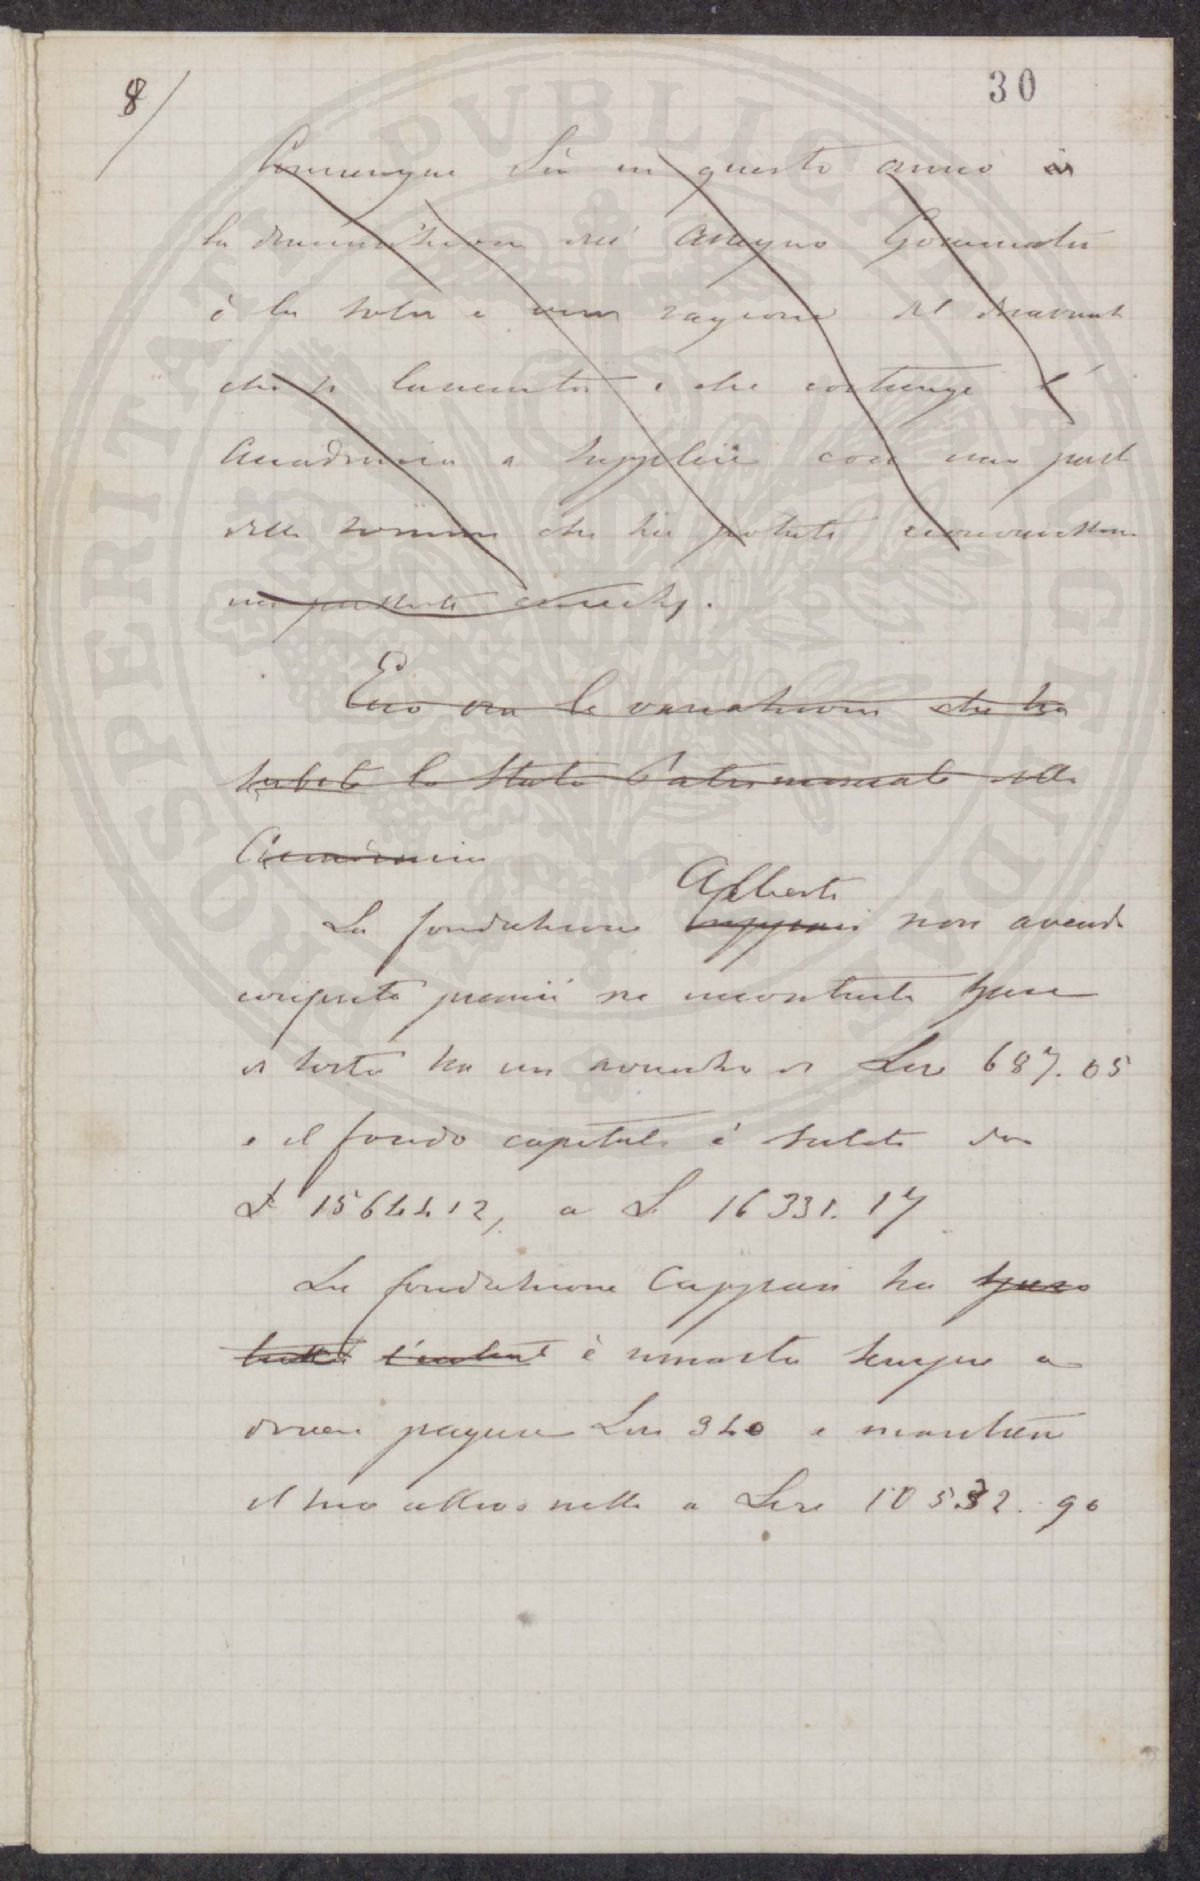 8/
30
Comunque sia in questo anno
la diminuzione dell' assegno Governativo
è la sola e vera ragione del disavanzo
che si lamenta e che costringe l'
Accademia a supplire con una parte
delle somme che ha potuto economizzare
nei passati esercizi.
Ecco ora le variazioni che ha
subito lo Stato Patrimoniale della
Accademia
Alberti
La fondazione Cappani non avendo
conferito premii ne incontrate spese
di sorta ha un avanzo di Lire 687.05
e il fondo capitale è salito da
L 15644 12, a L 16331. 17
La fondazione Cappani ha speso
tutte l'entrate è rimasta sempre a
dovere pagare Lire 340 e mantiene
il suo attivo netto a Lire 10532. 90